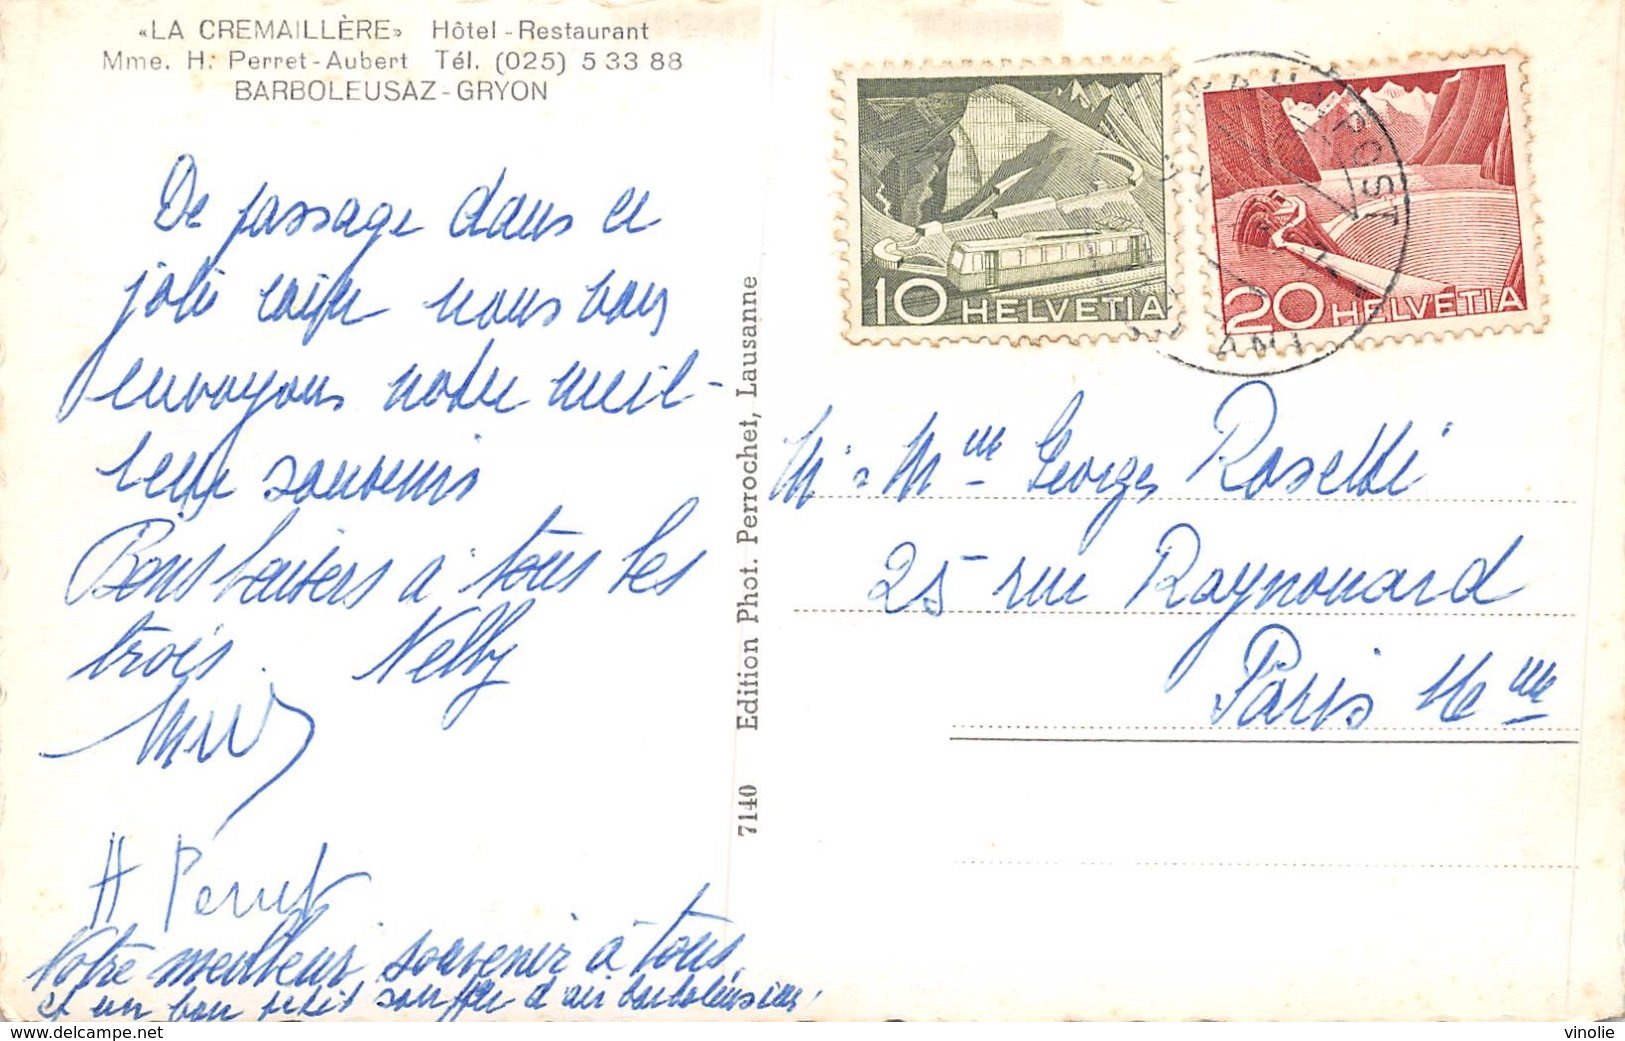 «LA CREMAILLÈRE» Hôtel-Restaurant
Mme. H. Perret-Aubert Tél. (025) 5 33 88
BARBOLEUSAZ-GRYON
De passage dans ce
joli coin nous vous
envoyons notre meil-
leur souvenir
Bons baisers à tous les
trois. Nelly
H Perret
Notre meilleur souvenir à tous
et un bon petit souffle d'air
7140 Edition Phot. Perrochet, Lausanne
10 HELVETIA
20 HELVETIA
POST
M. & Mme Georges Roselli
25 rue Raynouard
Paris
www.delcampe.net
vinolie